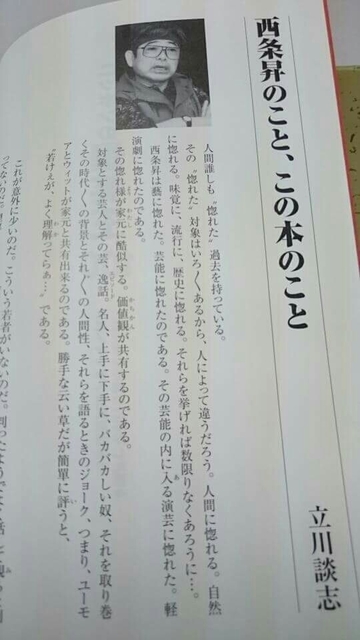 西条昇のこと、この本のこと
立川談志
人間誰しも〝惚れた〟過去を持っている。
その〝惚れた〟対象はいろ〱あるから、人によって違うだろう。人間に惚れる。自然
に惚れる。味覚に、流行に、歴史に惚れる。それらを挙げれば数限りなくあろうに…。
西条昇は藝に惚れた。芸能に惚れたのである。その芸能の内に入る演芸に惚れた。軽
演劇に惚れたのである。
その惚れ様が家元に酷似する。価値観が共有するのである。
対象とする芸人とその芸、逸話。名人、上手に下手に、バカバカしい奴、それを取り巻
くその時代〱の背景とそれ〲の人間性、それらを語るときのジョーク、つまり、ユーモ
アとウィットが家元と共有出来るのである。勝手な云い草だが簡単に評うと、
〝若けぇが、よく理解ってらぁ…〟である。
これが意外に少ないのだ。こういう若者がいないのだ。